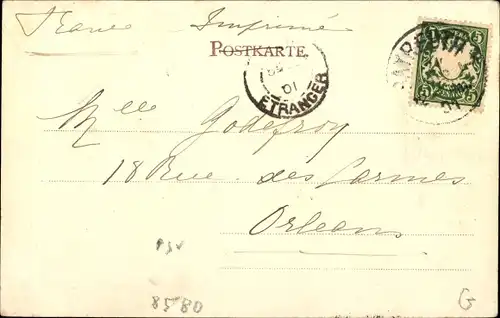 France Imprimé
POSTKARTE
BAYREUTH
5 5
01
ETRANGER
Mlle Godefroy
18 Rue des Carmes
Orleans
8580